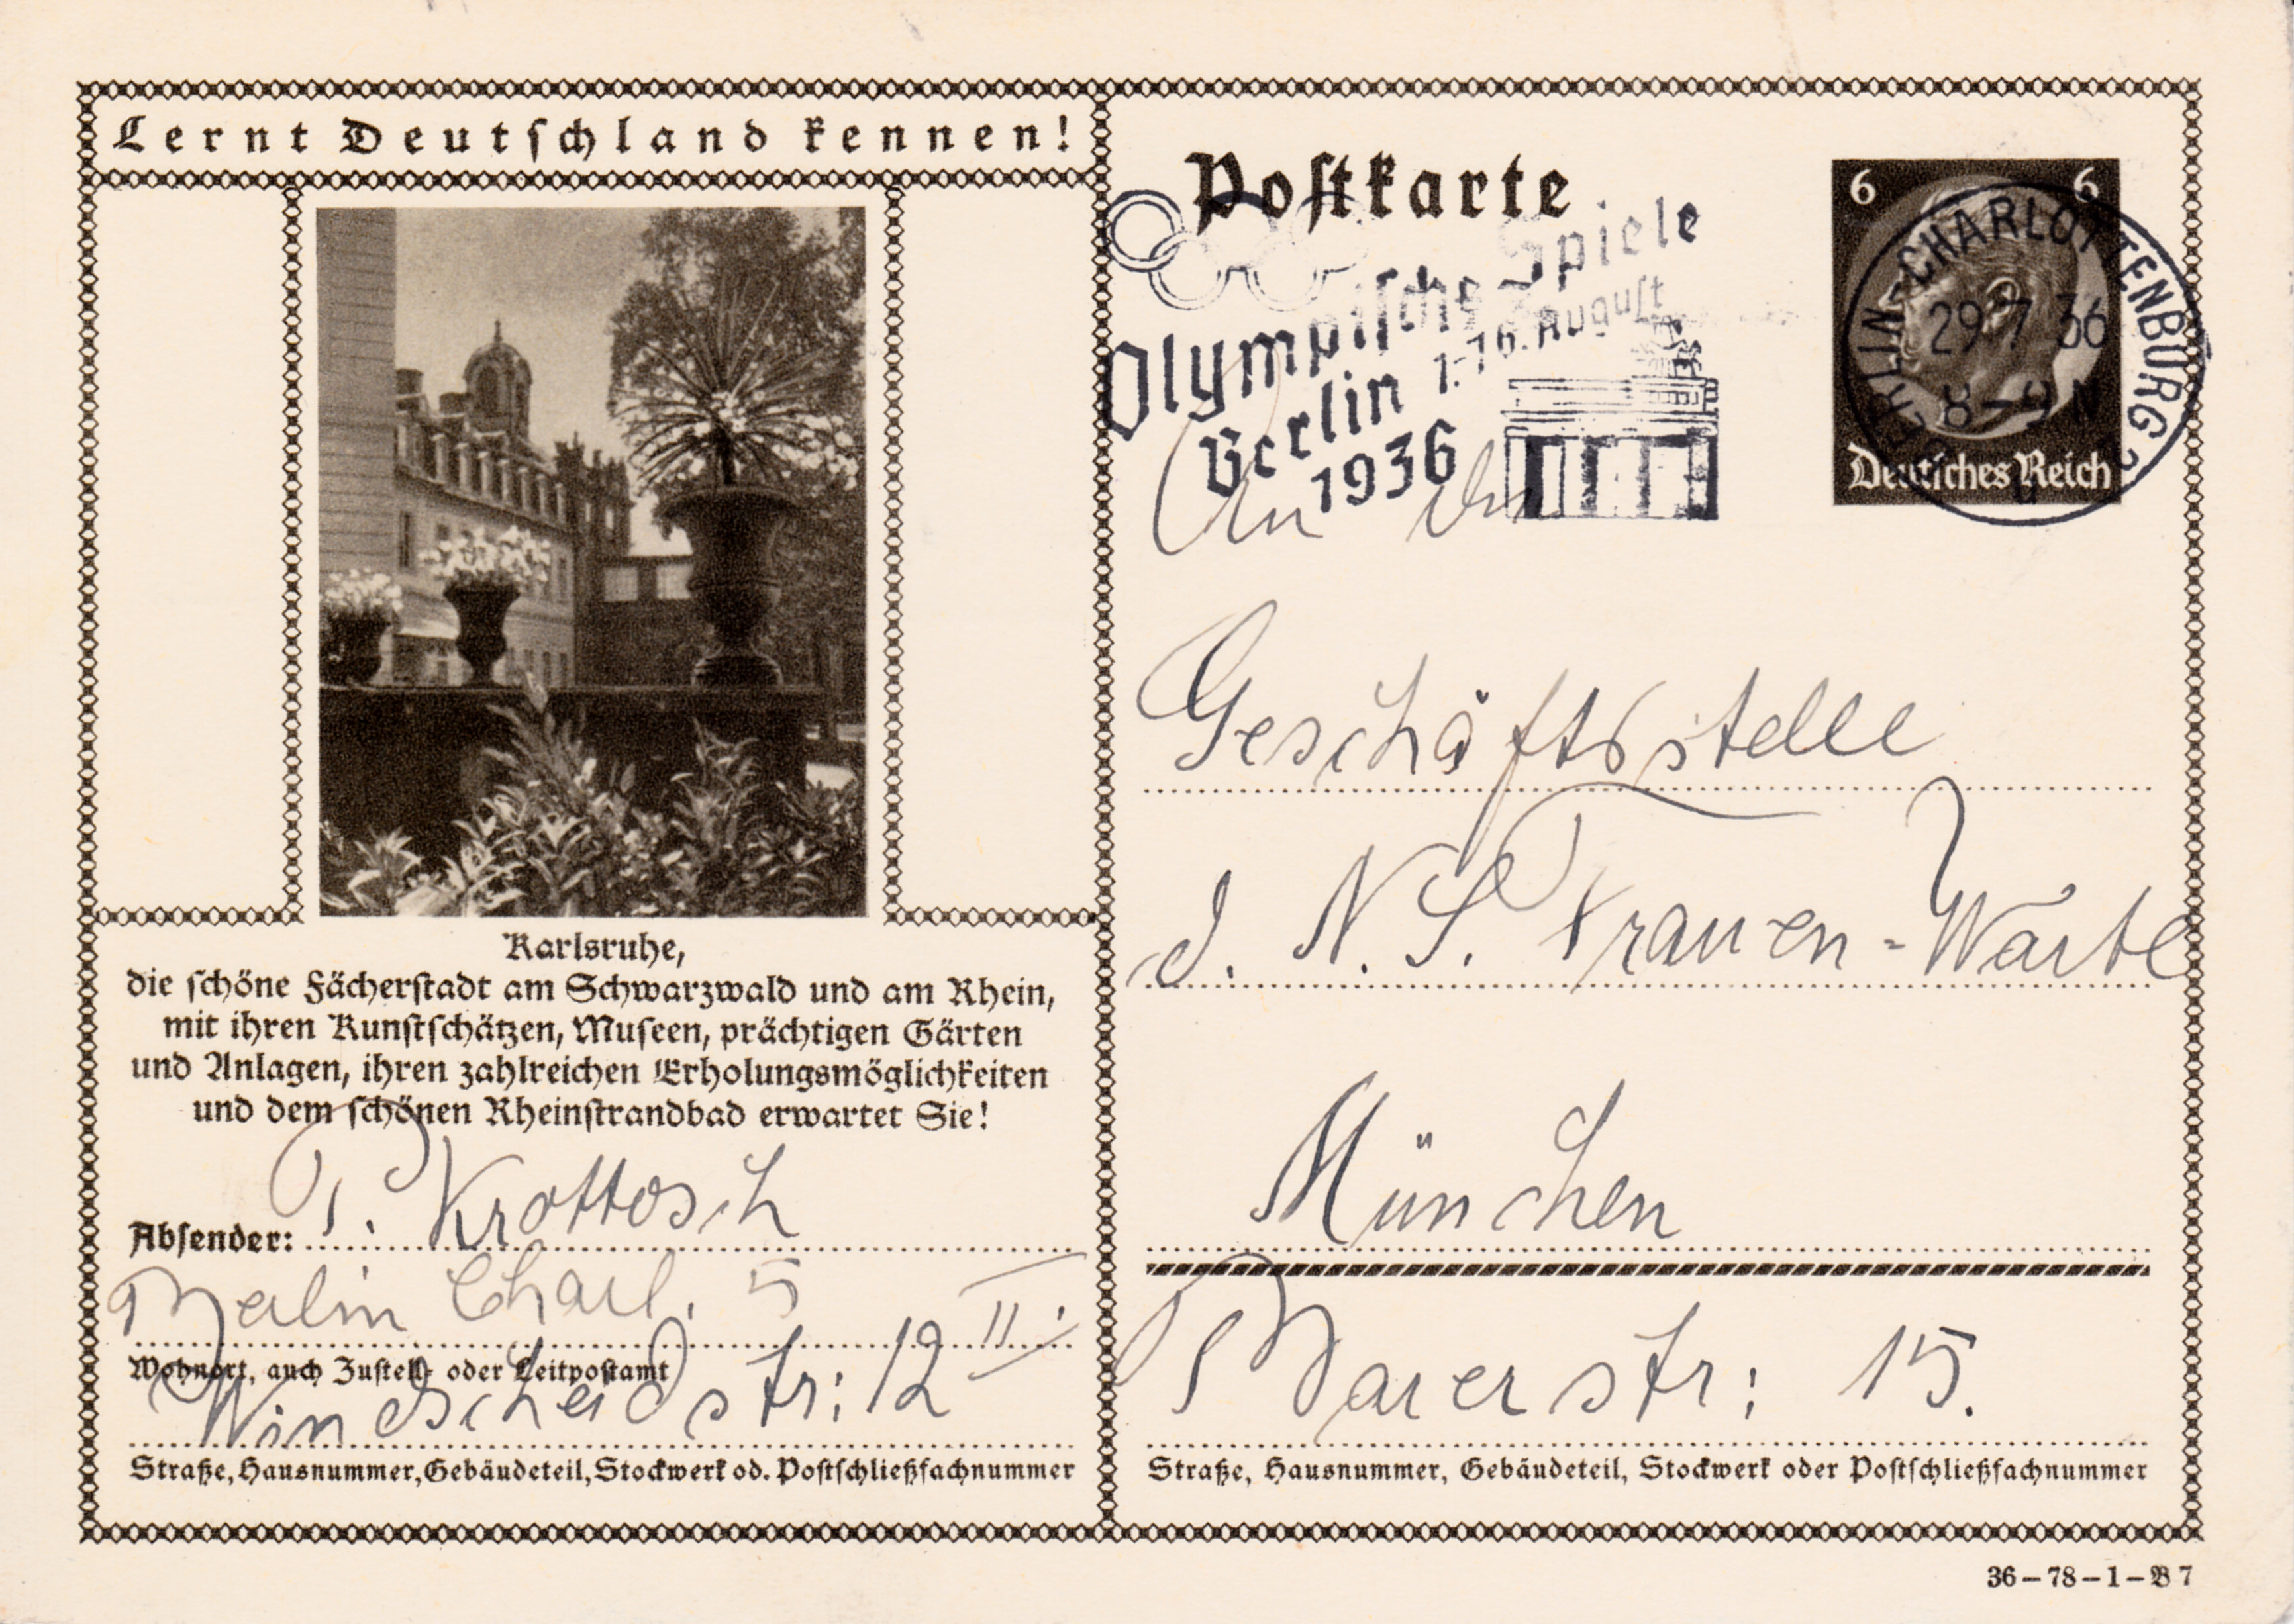 Lernt Deutschland kennen!
Karlsruhe,
die schöne Fächerstadt am Schwarzwald und am Rhein,
mit ihren Kunstschätzen, Museen, prächtigen Gärten
und Anlagen, ihren zahlreichen Erholungsmöglichkeiten
und dem schönen Rheinstrandbad erwartet Sie!
Absender: P. Krottosch
Berlin Charl. 5
Wohnort, auch Zustell- oder Leitpostamt
Windscheidstr: 12 II.
Straße, Hausnummer, Gebäudeteil, Stockwerk od. Postschließfachnummer
Postkarte
Olympische Spiele
Berlin 1.-16. August
1936
6 6
Deutsches Reich
BERLIN-CHARLOTTENBURG 2
29.7.36
8-9 N
An die
Geschäftsstelle
d. N. S. Frauen-Warte
München
Baierstr: 15.
Straße, Hausnummer, Gebäudeteil, Stockwerk oder Postschließfachnummer
36-78-1-B 7